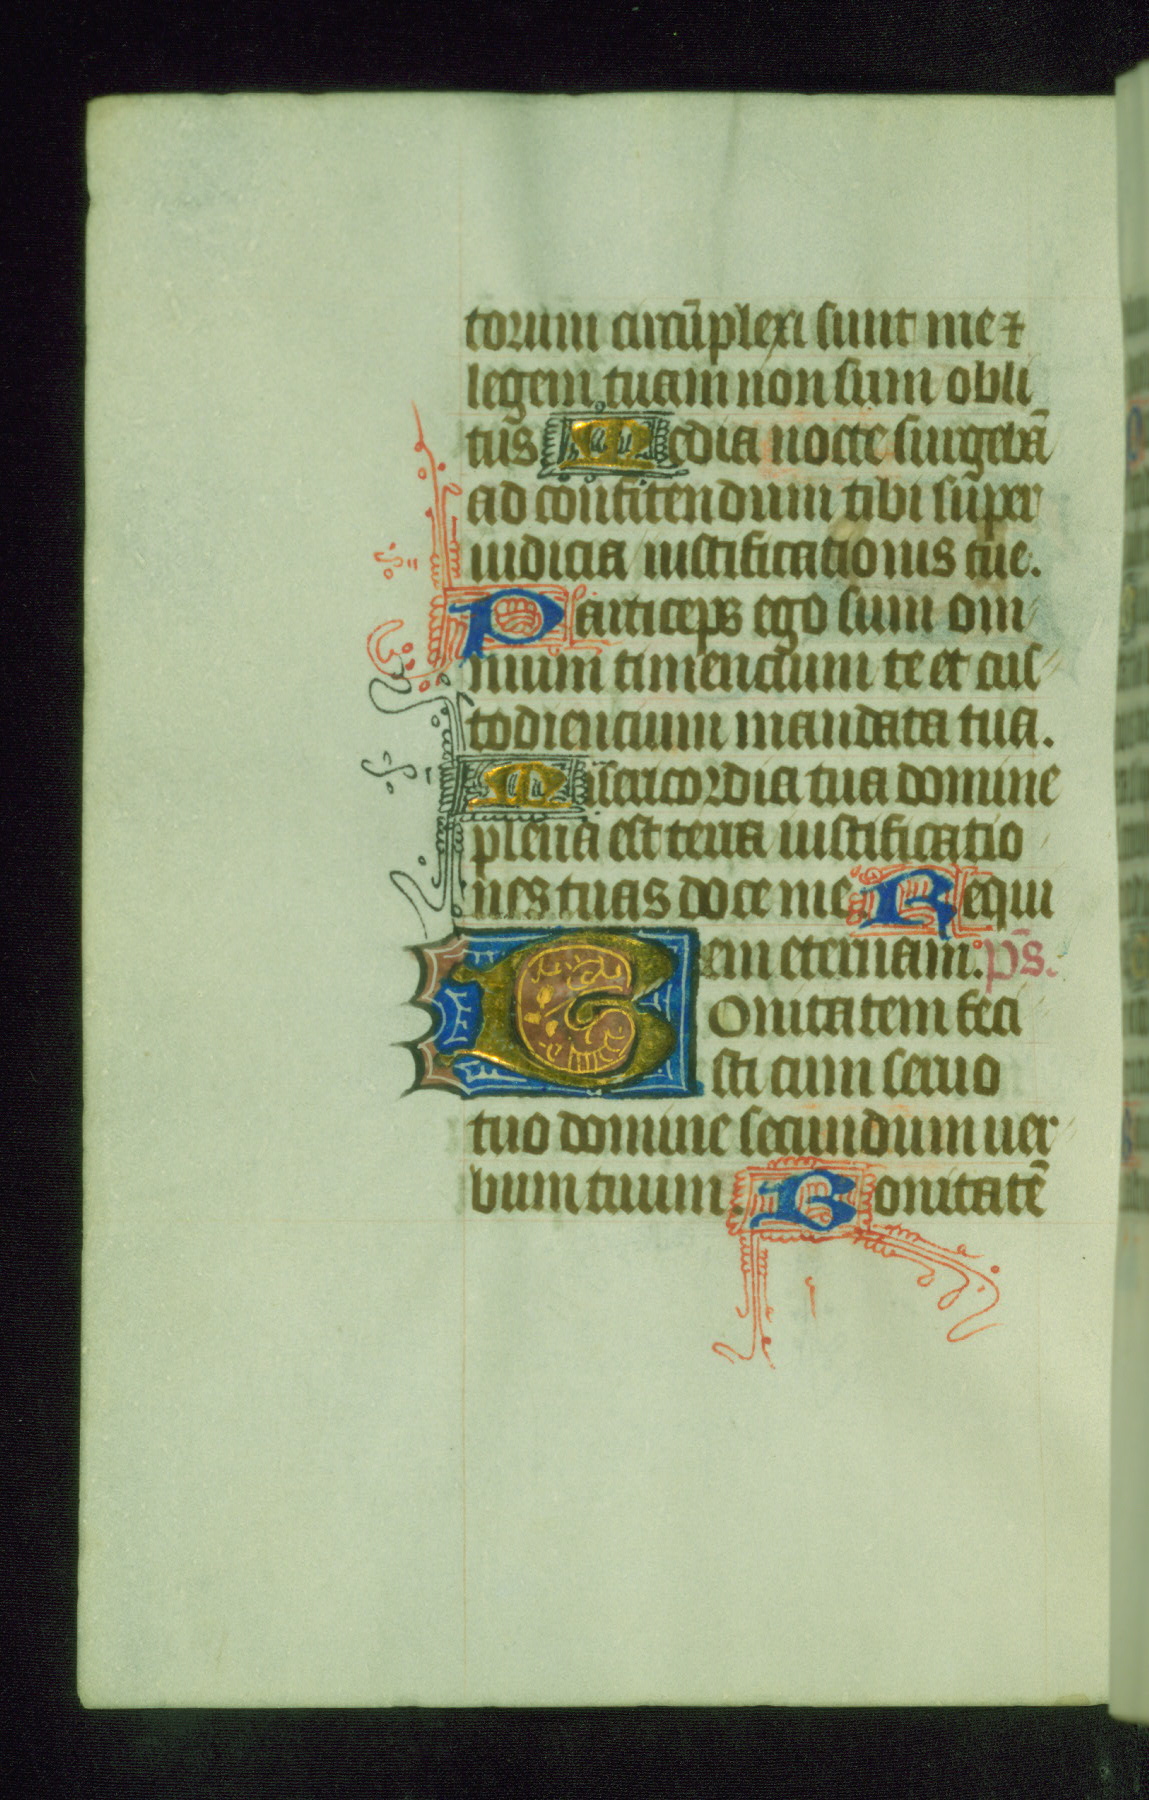 torum circū̄plexi sunt me ⁊
legem tuam non sum obli
tus Media nocte surgebā
ad confitendum tibi super
iudicia iustificationis tue.
Particeps ego sum om
nium timencium te et cus
todiencium mandata tua.
Misericordia tua domine
plena est terra iustificatio
nes tuas doce me. Requi
em eternam. p̄s.
Bonitatem feci
sti cum seruo
tuo domine secundum uer
bum tuum. Bonitatē